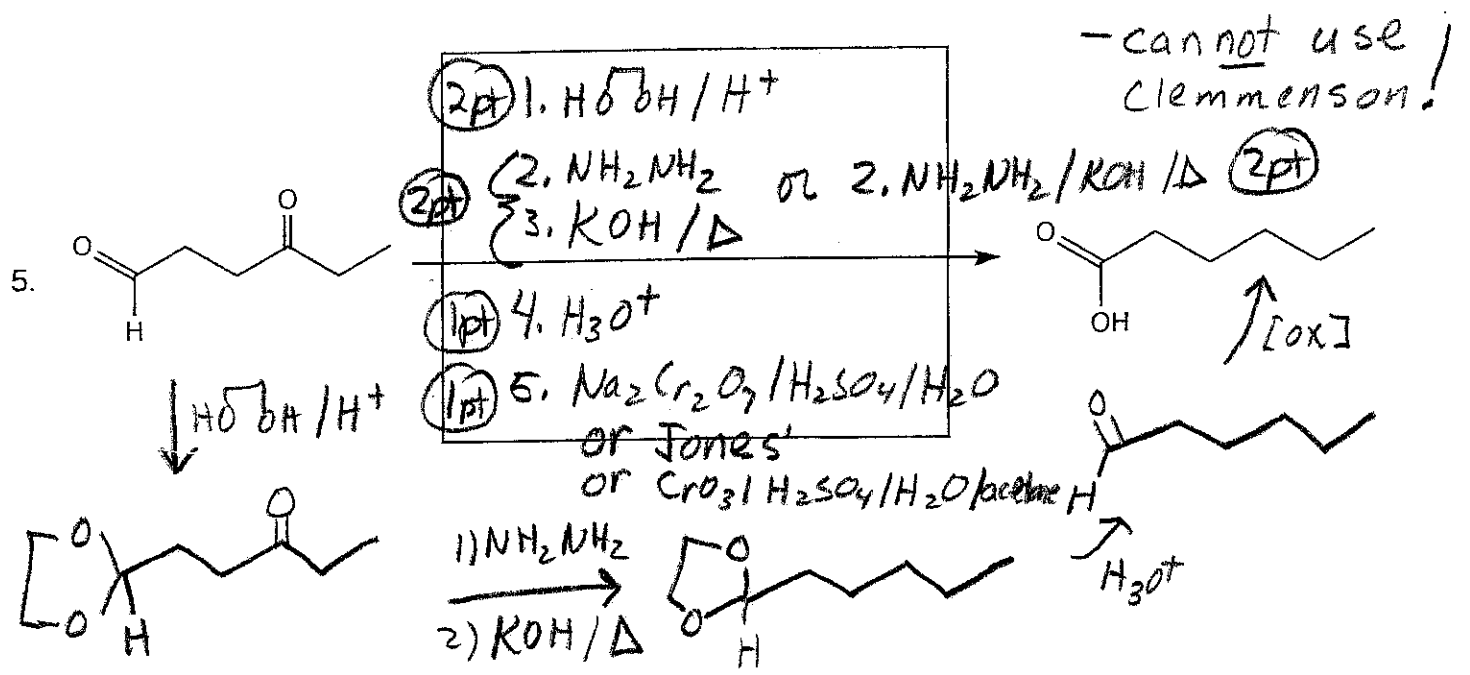 - cannot use
Clemmenson!
2pt 1. HO OH / H+
2pt 2. NH2NH2 or 2. NH2NH2/KOH/Δ 2pt
3. KOH/Δ
5.
O
H
O
O
OH
1pt 4. H3O+
[ox]
1pt 5. Na2Cr2O7/H2SO4/H2O
or Jones'
or CrO3/H2SO4/H2O/acetone
HO OH / H+
O
H
H3O+
O
O
H
O
1) NH2NH2
2) KOH/Δ
O
O
H